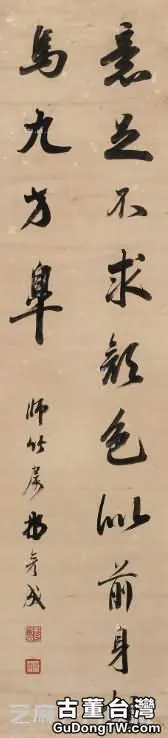 意足不求顏色似前身相
馬九方皋
師竹
成
古董台灣
GuDongTW.com